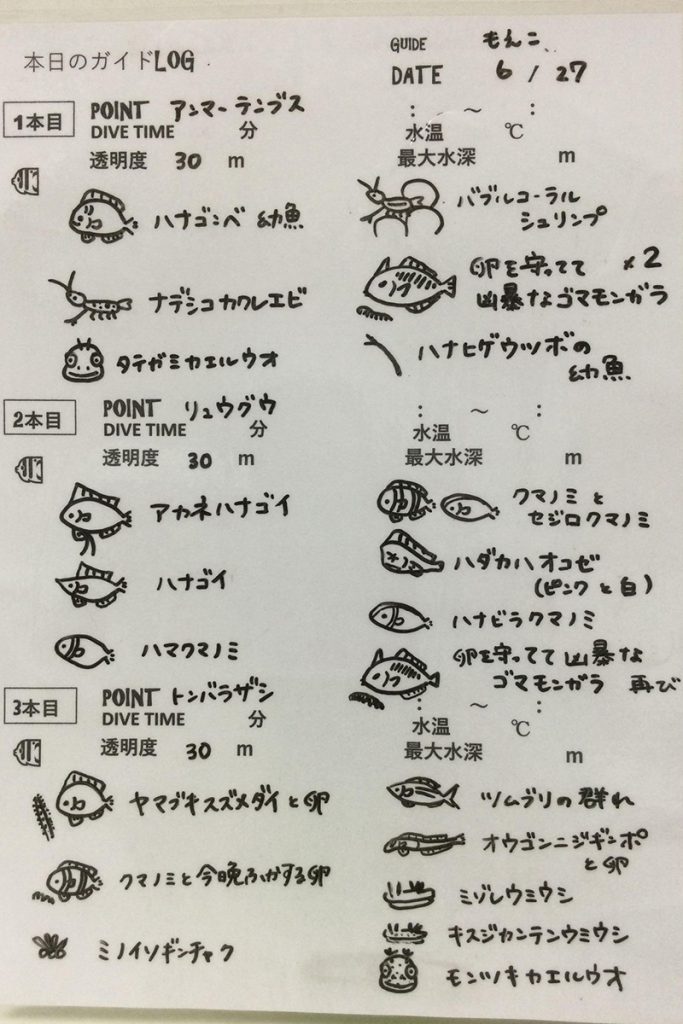 本日のガイドLOG
GUIDE もんこ
DATE 6 / 27
1本目
POINT アンマーテンブス
DIVE TIME 分
透明度 30 m
: ～ :
水温 ℃
最大水深 m
ハナゴンベ 幼魚
ナデシコカクレエビ
タテガミカエルウオ
バブルコーラル
シュリンプ
卵を守ってて ×2
凶暴なゴマモンガラ
ハナヒゲウツボの
幼魚
2本目
POINT リュウグウ
DIVE TIME 分
透明度 30 m
: ～ :
水温 ℃
最大水深 m
アカネハナゴイ
ハナゴイ
ハマクマノミ
クマノミと
セジロクマノミ
ハダカハオコゼ
(ピンクと白)
ハナビラクマノミ
卵を守ってて凶暴な
ゴマモンガラ 再び
3本目
POINT トンバラザシ
DIVE TIME 分
透明度 30 m
: ～ :
水温 ℃
最大水深 m
ヤマブキスズメダイと卵
クマノミと今晩ふかする卵
ミノイソギンチャク
ツムブリの群れ
オウゴンニジギンポ
と卵
ミゾレウミウシ
キスジカンテンウミウシ
モンツキカエルウオ